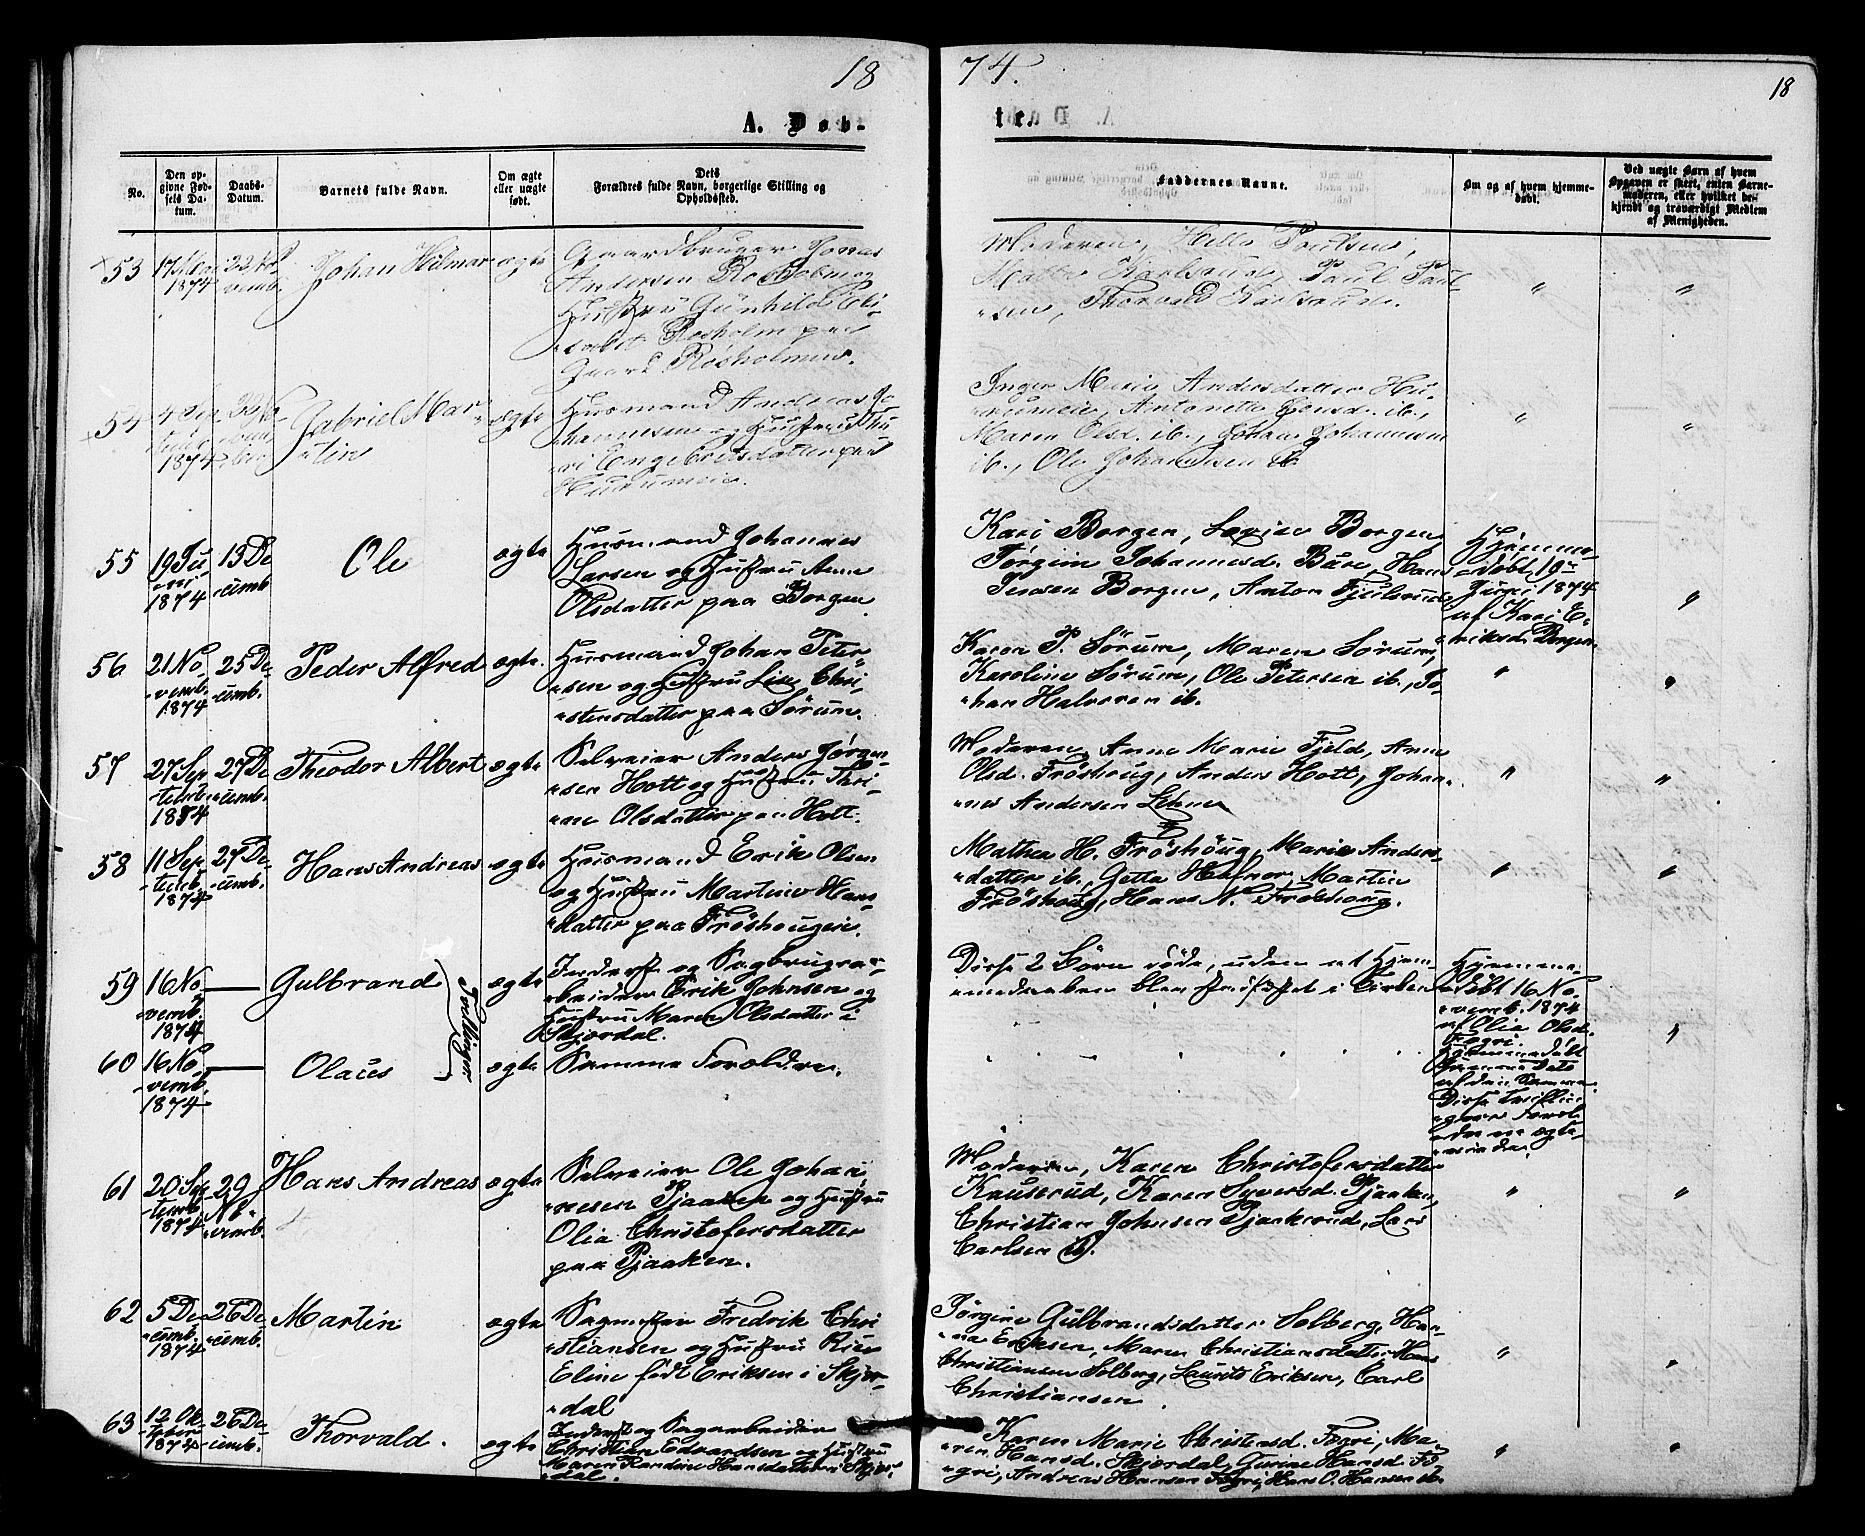 18
74.
18
A. Døb-
te.
No.
Den op-
givne Fød-
sels Da-
tum.
Daabs-
Datum.
Barnets fulde Navn.
Om ægte
eller uægte
født.
Dets
Forældres fulde Navn, borgerlige Stilling og
Opholdssted.
Faddernes Navne.
Om og af hvem hjemme-
døbt.
Ved uægte Børn af hvem
Opgaven er skeet, enten Barne-
moderen, eller hvilket be-
kjendt og troværdigt Medlem
af Menigheden.
53
17
1874
Johan Hilmar
ægte
Gaardbruger Jonas
Andersen Rosholm og
Hustru Gunhild Eli-
sabet Rosholm paa
Gaard Rosholmen.
Moderen, Helle Paulsen,
Mathe Karlsrud, Paul Paul-
sen, Thorvald Karlsrud.
"
"
54
4 Sep
temb
1874
22 No
vem
ber
Gabriel Mar-
tin
ægte
Husmand Andreas Jo-
hannesen og Hustru Thu-
ri Engebretsdatter paa
Hurumeie.
Inger Marie Andersdatter Hu-
rumeie, Antonette Jensd. ib.,
Maren Olsd. ib., Johan Johannesen
ib., Ole Johannesen ib.
"
"
55
19 Ju
ni
1874
13 De
cemb
Ole
ægte
Husmand Johannes
Larsen og Hustru Anne
Olsdatter paa Borgen
Kari Borgen, Lovise Borgen,
Jørgine Johannesd. Bure, Hans
Jensen Borgen, Anton Fjulsrud
Hjemme-
døbt 19de
Juni 1874
af Kari E-
riksd. Borgen
"
56
21 No
vemb.
1874
25 De
cemb.
Peder Alfred
ægte.
Husmand Johan Peter
sen og Hustru Lise Chri
stensdatter paa Sørum.
Karen P. Sørum, Maren Sørum,
Karoline Sørum, Ole Petersen ib., Jo-
han Halvorsen ib.
"
"
57
27 Sep
temb.
1874
27 De
cemb.
Theodor Albert
ægte
Selveier Anders Jørgen
sen Hott og Hustru Thri
ne Olsdatter paa Hott.
Moderen, Anne Marie Fjeld, Anne
Olsd. Frøshoug, Anders Hott, Johan-
nes Andersen Lehne
"
"
58
11 Sep
temb.
1874
27 De
cemb.
Hans Andreas
ægte
Husmand Erik Olsen
og Hustru Martine Hans
datter paa Frøshougeie.
Mathea H. Frøshoug, Marie Anders
datter ib., Martin
Frøshoug, Hans N. Frøshoug.
"
"
59
16 No
vemb.
1874
Gulbrand
Tvillinger
ægte
Inderst og Sagbrugsar-
beider Erik Johnsen og
Hustru Maren Olsdatter i
Skjordal.
Disse 2 Børn døde, uden at Hjem-
medaaben blev stadfæstet i Kirken
Hjemme-
døbt 16 No-
vemb. 1874
af Olia Olsd.
Fogri.
"
60
16 No
vemb.
1874
Olaus
ægte
Samme Forældre.
Hjemmedøbt
Samme Dato
af den Samme.
Disse Tvillin-
gers Foræl-
dre ere ægte-
viede.
61
20 Sep
temb.
1874
29
No-
vemb.
Hans Andreas
ægte
Selveier Ole Johan
nesen Pjaaken og Hustru
Olia Christofersdatter
paa Pjaaken.
Moderen, Karen Christofersdatter
Kauserud, Karen Syversd. Pjaaken,
Christian Johnsen Pjaakerud, Lars
Carlsen ib.
"
"
62
5 De
cemb.
1874
26 De
cemb.
Martin
ægte
Sagmester Fredrik Chri
stiansen og Hustru
Eline født Eriksen i Skjor-
dal
Jørgine Gulbrandsdatter Solberg, Han-
na Eriksen, Maren Christiansdatter, Hans
Christiansen Solberg, Laurits Eriksen, Carl
Christiansen.
"
"
63
12 Ok
tober
1874
26 De
cemb.
Thorvald.
ægte
Inderst og Sagarbeider
Christian Edvardsen og Hustru
Maren Randine Hansdatter i Skjor-
dal.
Karen Marie Christensd. Fogri, Ma-
ren Hansd. Skjordal, Gurine Hansd. Fo-
gri, Andreas Hansen Fogri, Hans O. Hansen ib.
"
"